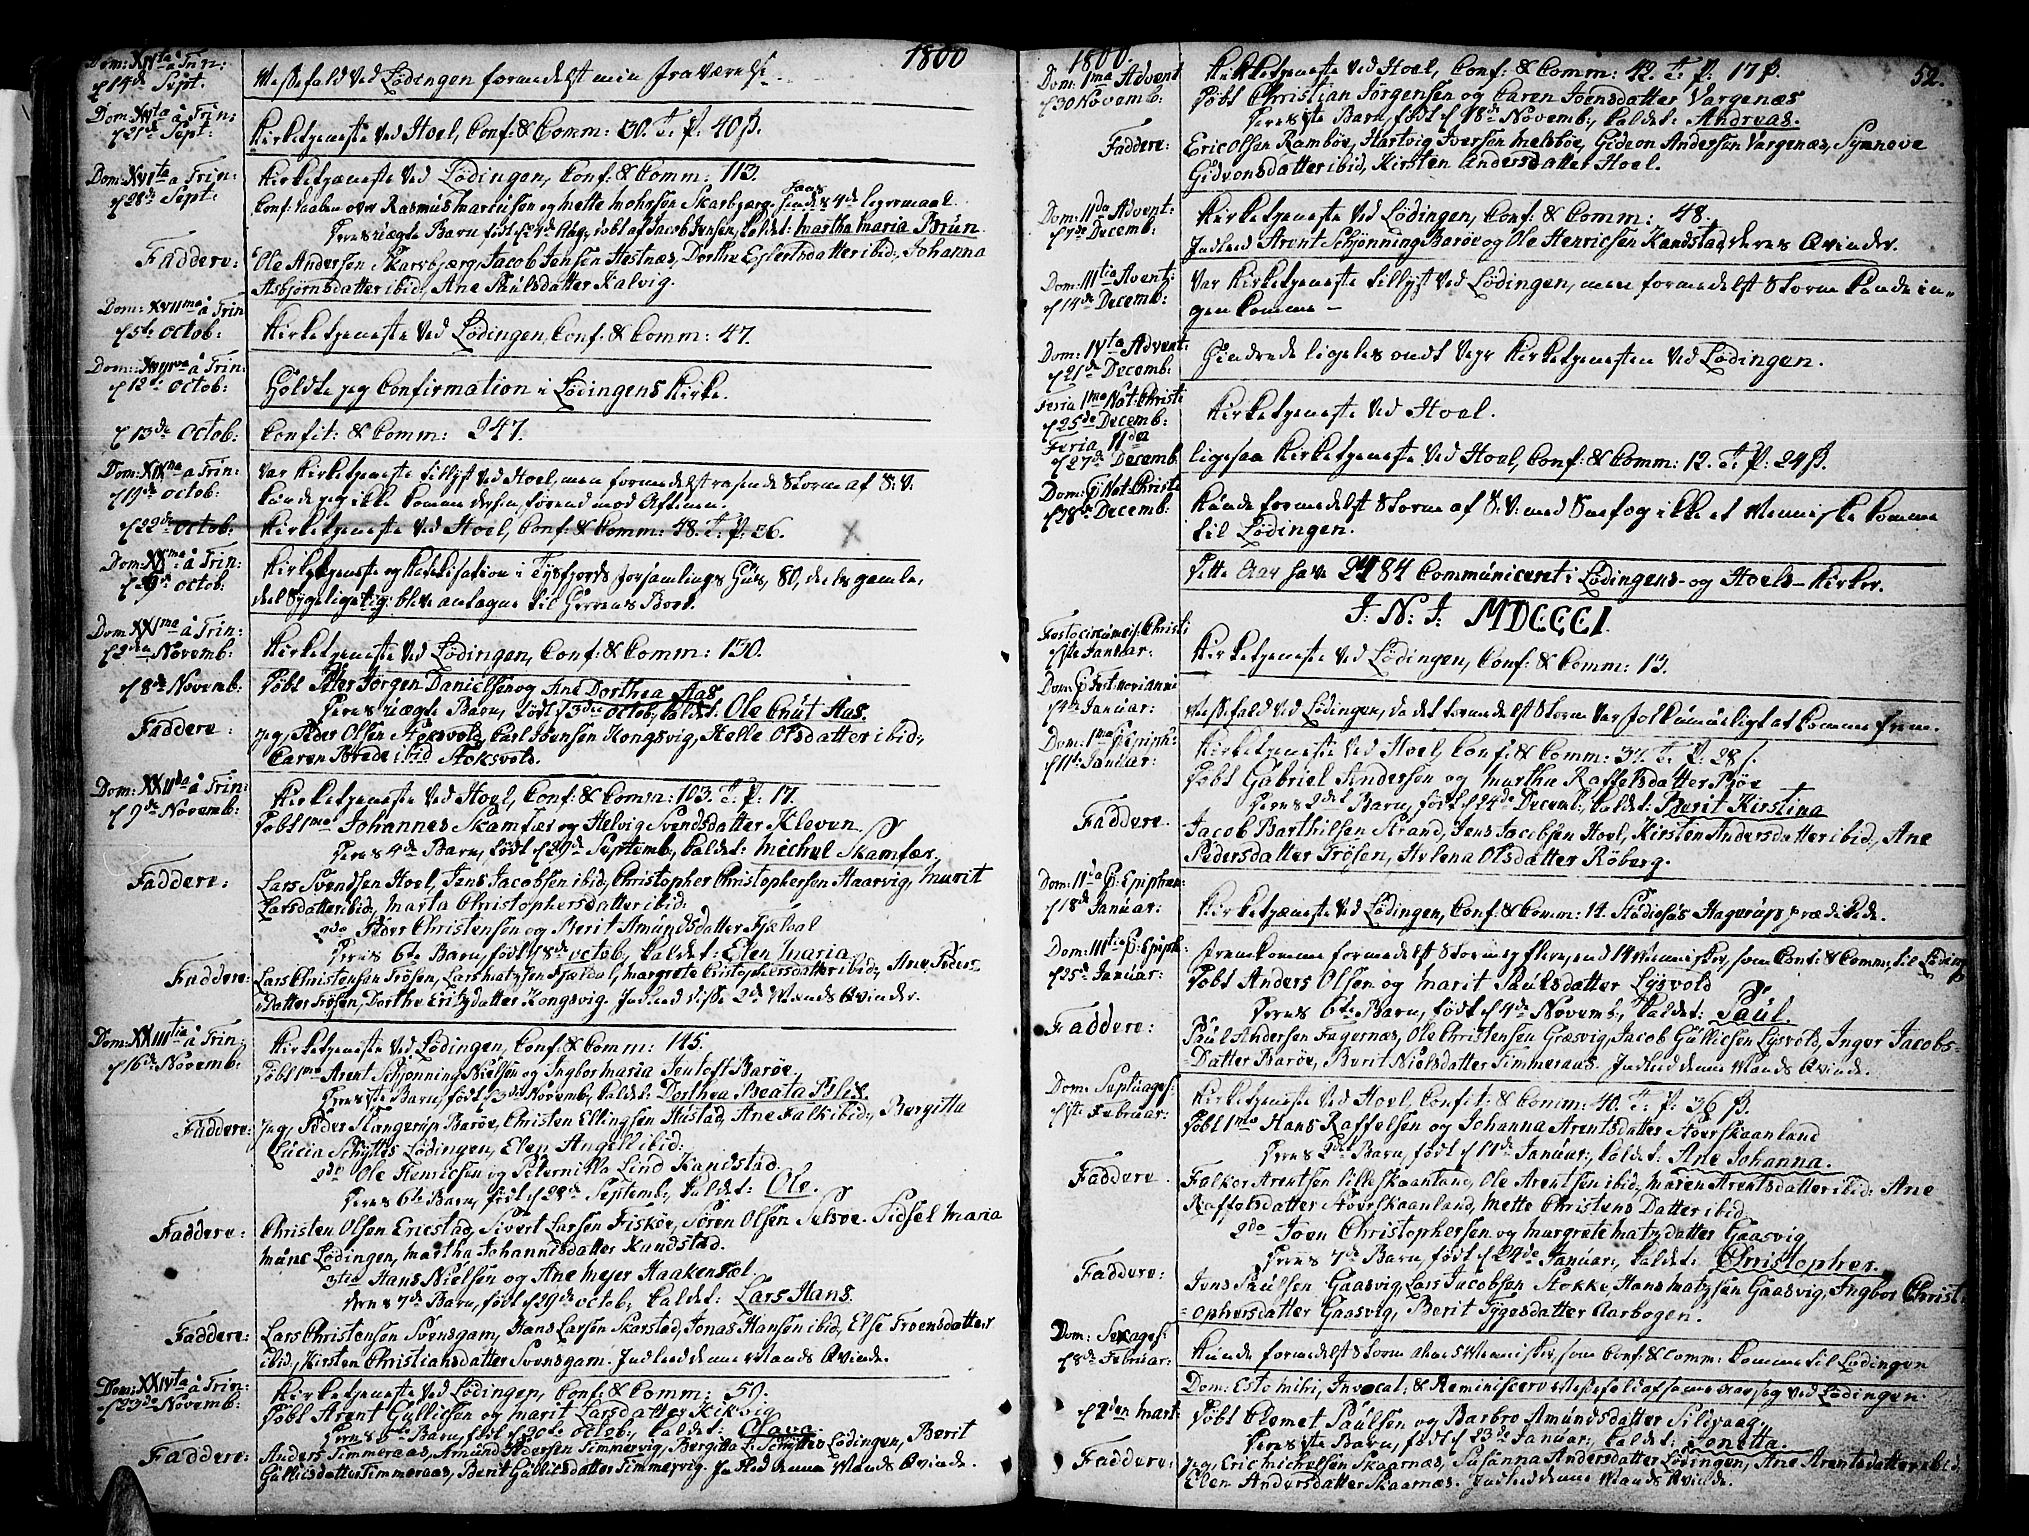 1800
Dom: XIVta â Trin:
d 14de Sept.
Messefald ved Lödingen formedelst min fraværelse.
Dom: XVta â Trin:
d 21de Sept:
Kirketjeneste ved Hoel, Conf: & Comm: 30. T. P. 40 ß.
Dom: XVIta â Trin:
d 28de Sept:
Kirketjeneste ved Lödingen, Conf: & Comm: 113.
Rasmus Marcussen og Mette Mohrsen Skarbjerg 4de legermaal.
Deres uægte Barn, født d 4de Aug, døbt af Jacob Jensen, kaldet: Martha Maria Brun.
Faddere:
Ole Andersen Skarsbjerg, Jacob Jensen Hestnæs, Dorthe Eylertsdatter ibid:, Johanna
Asbjørnsdatter ibid:, Ane Paulsdatter Kalvig.
Dom: XVIIma â Trin
d 5te Octob:
Kirketjeneste ved Lödingen, Conf: & Comm: 47.
Dom: XVIIIva â Trin:
d 12te Octob:
Holdte jeg Confirmation i Lödingens Kirke.
d 13de Octob:
Confit: & Comm: 247.
Dom: XIXna â Trin:
d 19de Octob:
Var Kirketjeneste tillyst ved Hoel, men formedelst rasende Storm af S.V.
kunde jeg ikke komme dersen, førend mod Aftenen.
d 22de Octob:
Kirketjeneste ved Hoel, Conf: & Comm: 48. T. P. 36.
Dom: XXma â Trin:
Octob:
Kirketjeneste og Katekisation i Tysfjords forsamlings Huus, 80, deels gamle,
deel sygelige bleve antagne til Herrens Bord.
Dom: XXIma â Trin:
d 2den Novemb:
Kirketjeneste ved Lödingen, Conf: & Comm: 130.
d 8de Novemb:
Døbt Peter Jørgen Danielsen og Ane Dorthea Aas
Deres uægte Barn, født d 3de Octob, kaldet: Ole Cnut Aas.
Faddere:
jeg, Peder Olsen Stoksvold, Carl Jvensen Kongsvig, Helle Olsdatter ibid:,
Caren Brede ibid Stoksvold.
Dom: XXIIda â Trin:
d 9de Novemb:
Kirketjeneste ved Hoel, Conf: & Comm: 103. T. P. 17.
Døbt 1mo Johannes Skamfær og Helvig Svendsdatter Kleven.
Deres 4de Barn, født d 29de Septemb, kaldet: Michel Skamfær.
Faddere:
Lars Svendsen Hoel, Jens Jacobsen ibid, Christopher Christophersen Haarvig, Marit
Larsdatter ibid:, Marta Christophersdatter ibid:
2do Peder Christensen og Berit Amundsdatter Fjældal
Deres 6te Barn, født 8de Octob, kaldet: Elen Maria.
Faddere:
Lars Christensen Trösen, Lars Matzsen Fjeldal, Margrete Cristophersdatter ibid:, Ane Peders
Datter Trösen, Dorthe Eritzdatter Kongsvig. Indled disse 2de Mænds Qvinder.
Dom: XXIIItia â Trin:
d 16de Novemb:
Kirketjeneste ved Lödingen, Conf: & Comm: 145.
Døbt 1mo Arent Schjønning Nielsen og Ingbor Maria Jentoft Barøe.
Deres 1ste Barn, født d 3de Novemb, kaldet: Dorthea Beata Blix.
Faddere:
jeg, Peder Stangerup Barøe, Christen Ellingsen Hustad, Ane Falk ibid:, Bergitta
Lucia Schyttes Lödingen, Elen Angell ibid:
2do Ole Henricsen og Peternilla Lind Kandstad.
Deres 6te Barn, født d Septemb, kaldet: Ole.
Faddere:
Christen Olsen Ericstad, Sivert Larsen Fiskøe, Søren Olsen Selsøe. Sidsel Maria
Munc Lödingen, Martha Johannisdatter Kandstad.
3tio Hans Nielsen og Ane Mejer Haakensæl.
Deres 7de Barn, født d 29de Octob, kaldet: Lars Hans.
Faddere:
Lars Christensen Svensgam, Hans Larsen Skarstad, Jonas Hansen ibid, Else Troensdatter
ibid:, Kirsten Christiansdatter Svensgam. Indled denne Mands Qvinde.
Dom: XXIVta â Trin:
d 23de Novemb:
Kirketjeneste ved Lödingen, Conf: & Comm: 50.
Døbt Arent Gullicsen og Marit Larsdatter Kikvig.
Barn, født d 20de Octob, kaldet: Olava
Faddere:
Anders Timmeraas, Amund Pedersen Timmervig, Bergitta L: Schyttes Lödingen, Berit
Gullicsdatter Timmeraas, Berit Gullicsdatter Timmervig. Indled denne Mands Qvinde.
1800.
52.
Dom: 1ma Advent
d 30 Novemb:
Kirketjeneste ved Hoel, Conf: & Comm: 42. T. P. 17 ß.
Døbt Christian Jörgensen og Caren Joensdatter Vargenæs
Deres 1ste Barn, født d 18de Novemb, kaldet: Andreas.
Faddere:
Eric Olsen Ramböe, Hartvig Iversen Melsböe, Gideon Andersen Vargenæs, Synnove
Gidvonsdatter ibid, Kirsten Andersdatter Hoel.
Dom: IIda Advent:
d 7de Decemb:
Kirketjeneste ved Lödingen, Conf: & Comm: 48.
Indled Arent Schjønning Barøe og Ole Henricsen Kandstad, deres Qvinder.
Dom: IIItia Advent:
d 14de Decemb:
Var Kirketjeneste tillyst ved Lödingen, men formedelst Storm kunde in-
gen komme –
Dom: IVta Advent:
d 21de Decemb:
Hindrede ligeledes ondt Vejr Kirketjenesten ved Lödingen.
Feria 1ma Nat: Christi
d 25de Decemb:
Kirketjeneste ved Hoel.
Feria IIda
d 27de Decemb
ligesaa Kirketjeneste ved Hoel, Conf: & Comm: 12. T. P. 24 ß.
Dom: p Nat: Christi
d 28de Decemb:
Kunde formedelst Storm af S.V. med Snefog ikke et Menneske komme
til Lödingen.
Dette Aar have 2484 Communiceret i Lödingens- og Hoels-Kirker.
J. N. J. MDCCCI.
Festo circumcis: Christi
d 1ste Januar:
Kirketjeneste ved Lödingen, Conf: & Comm: 13.
d 4de Januar:
Messefald ved Lödingen, da det formedelst Storm var Folk umueligt at komme frem.
Dom: 1ma p Epiph:
d 11te Januar:
Kirketjeneste ved Hoel, Conf: & Comm: 37. T. P. 28 ß.
Døbt Gabriel Andersen og Martha Raffelsdatter Böe
Deres 2det Barn, født d 24de Decemb:, kaldet: Berit Kirstina
Faddere.
Jacob Barthilsen Strand, Jens Jacobsen Hoel, Kirsten Andersdatter ibid:, Ane
Pedersdatter Trösen, Helena Olsdatter Röberg.
Dom: IIda p. Epiphan:
d 18de Januar:
Kirketjeneste ved Lödingen, Conf: & Comm: 14. Studiosus Hagerups prædikede.
Dom: IIItia p: Epiph:
d 25de Januar:
fremkomme formedelst Storm ej flere, end 14 Mennisker, som Conf: & Comm:, til Lödingen
Døbt Anders Olsen og Marit Paulsdatter Lysvold
Deres 6te Barn, født d 4de Novemb, kaldet: Paul
Faddere:
Paul Andersen Fagernæs, Ole Christensen Græsvig, Jacob Gullicsen Lysvold, Inger Jacobs-
Datter Barøe, Berit Nielsdatter Timmeraas. Indled denne Mands Qvinde.
Dom: Septuages:
d 1ste Februar:
Kirketjeneste ved Hoel, Confit: & Comm: 40. T. P. 36 ß.
Døbt 1mo Hans Raffelsen og Johanna Arentsdatter Stoerskaanland
Barn, født d 11te Januar, kaldet: Ane Johanna.
Faddere.
Falkor Arentsen Lilleskaanland, Ole Arentsen ibid, Maren Arentsdatter ibid: Ane
Raffelsdatter Stoerskaanland, Mette Christens Datter ibid.
2do Joen Christophersen og Margrete Matzdatter Gaasvig
Deres 7de Barn, født d 24de Januar, kaldet: Christopher.
Faddere:
Jens Paulsen Gaasvig, Lars Jacobsen Stokke, Hans Matzsen Gaasvig, Ingbor Christ-
ophersdatter Gaasvig, Berit Tygesdatter Aarbogen.
Dom: Sexages:
d 8de Februar:
Kunde formedelst Storm alene 5 Mennisker, som Conf: & Comm: komme til Lödingen
Dom: Esto mihi, Invocat: & Reminiscere Messefald af samme Aarsag ved Lödingen.
d 2den Mart:
Døbt Clemet Paulsen og Barbro Amundsdatter Sildvaag,
Deres 1ste Barn, født d 23de Januar:, kaldet: Jonetta.
Faddere:
jeg, Eric Michelsen Skaarnæs, Susanna Andersdatter Lödingen, Ane Arentsdatter ibid,
Elen Andersdatter Skaarnæs. Indled denne Mands Qvinde.